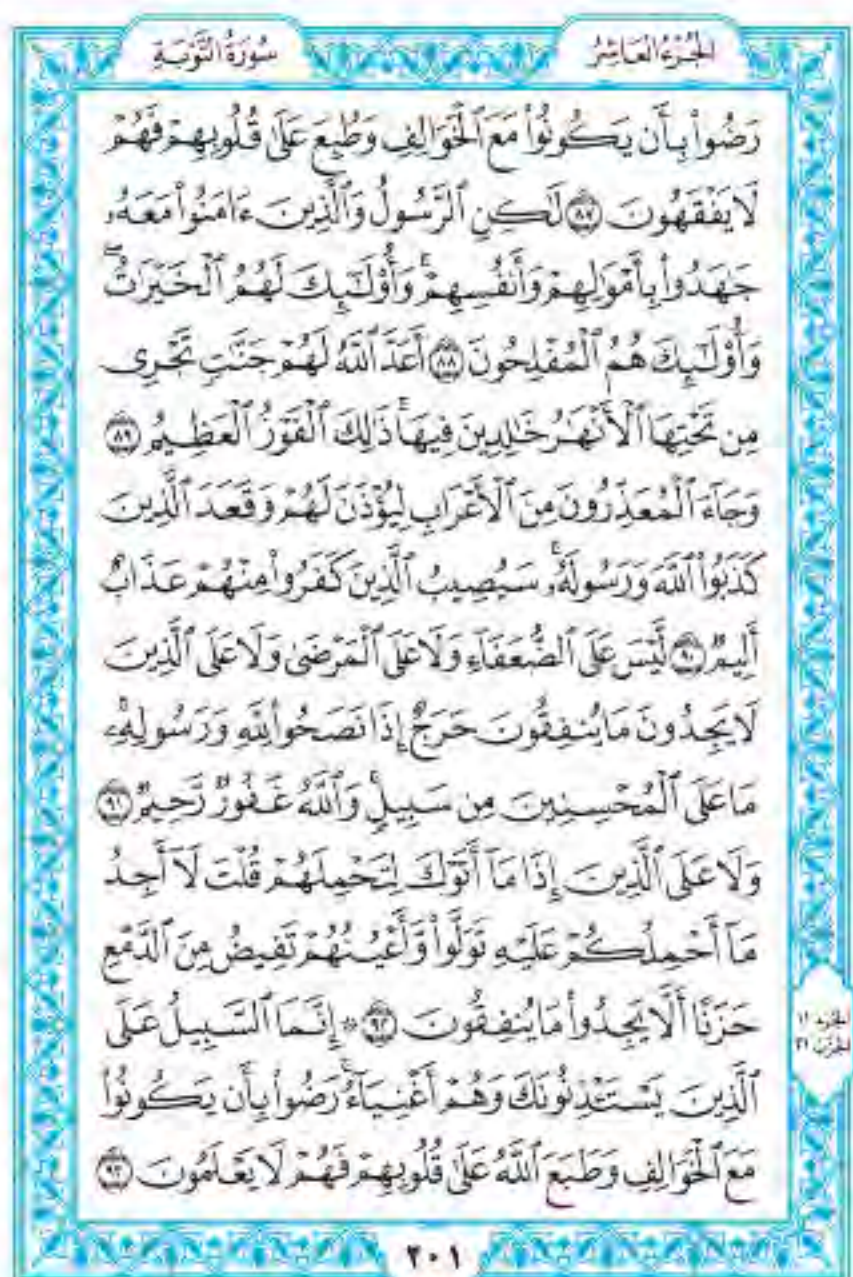 الجُزْءُ العَاشِرُ
سُورَةُ التَّوْبَةِ
رَضُواْ بِأَن يَكُونُواْ مَعَ ٱلْخَوَالِفِ وَطُبِعَ عَلَىٰ قُلُوبِهِمْ فَهُمْ
لَا يَفْقَهُونَ ٨٧ لَٰكِنِ ٱلرَّسُولُ وَٱلَّذِينَ ءَامَنُواْ مَعَهُۥ
جَٰهَدُواْ بِأَمْوَٰلِهِمْ وَأَنفُسِهِمْۚ وَأُوْلَٰٓئِكَ لَهُمُ ٱلْخَيْرَٰتُۖ
وَأُوْلَٰٓئِكَ هُمُ ٱلْمُفْلِحُونَ ٨٨ أَعَدَّ ٱللَّهُ لَهُمْ جَنَّٰتٍ تَجْرِى
مِن تَحْتِهَا ٱلْأَنْهَٰرُ خَٰلِدِينَ فِيهَاۚ ذَٰلِكَ ٱلْفَوْزُ ٱلْعَظِيمُ ٨٩
وَجَآءَ ٱلْمُعَذِّرُونَ مِنَ ٱلْأَعْرَابِ لِيُؤْذَنَ لَهُمْ وَقَعَدَ ٱلَّذِينَ
كَذَبُواْ ٱللَّهَ وَرَسُولَهُۥۚ سَيُصِيبُ ٱلَّذِينَ كَفَرُواْ مِنْهُمْ عَذَابٌ
أَلِيمٌ ٩٠ لَّيْسَ عَلَى ٱلضُّعَفَآءِ وَلَا عَلَى ٱلْمَرْضَىٰ وَلَا عَلَى ٱلَّذِينَ
لَا يَجِدُونَ مَا يُنفِقُونَ حَرَجٌ إِذَا نَصَحُواْ لِلَّهِ وَرَسُولِهِۦۚ
مَا عَلَى ٱلْمُحْسِنِينَ مِن سَبِيلٍۚ وَٱللَّهُ غَفُورٌ رَّحِيمٌ ٩١
وَلَا عَلَى ٱلَّذِينَ إِذَا مَآ أَتَوْكَ لِتَحْمِلَهُمْ قُلْتَ لَآ أَجِدُ
مَآ أَحْمِلُكُمْ عَلَيْهِ تَوَلَّواْ وَّأَعْيُنُهُمْ تَفِيضُ مِنَ ٱلدَّمْعِ
حَزَنًا أَلَّا يَجِدُواْ مَا يُنفِقُونَ ٩٢ ۞ إِنَّمَا ٱلسَّبِيلُ عَلَى
ٱلَّذِينَ يَسْتَـْٔذِنُونَكَ وَهُمْ أَغْنِيَآءُۚ رَضُواْ بِأَن يَكُونُواْ
مَعَ ٱلْخَوَالِفِ وَطَبَعَ ٱللَّهُ عَلَىٰ قُلُوبِهِمْ فَهُمْ لَا يَعْلَمُونَ ٩٣
الجزء ١١
الحزب ٢١
٢٠١